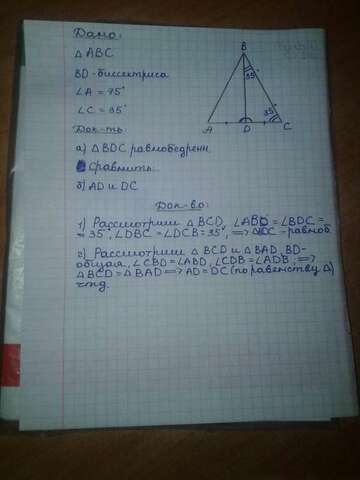 Дано:
△ ABC
BD - биссектриса
∠A = 75°
∠C = 35°
Док-ть
а) △ BDC равнобедренн.
Сравнить.
б) AD и DC
B
35°
35°
A D C
Док-во:
1) Рассмотрим △ BCD, ∠ABD = ∠BDC =
= 35°, ∠DBC = ∠DCB = 35°, ⟹ △BDC - равноб.
2) Рассмотрим △ BCD и △ BAD, BD-
общая, ∠CBD = ∠ABD, ∠CDB = ∠ADB, ⟹
△BCD = △BAD ⟹ AD = DC (по равенству △)
чтд.